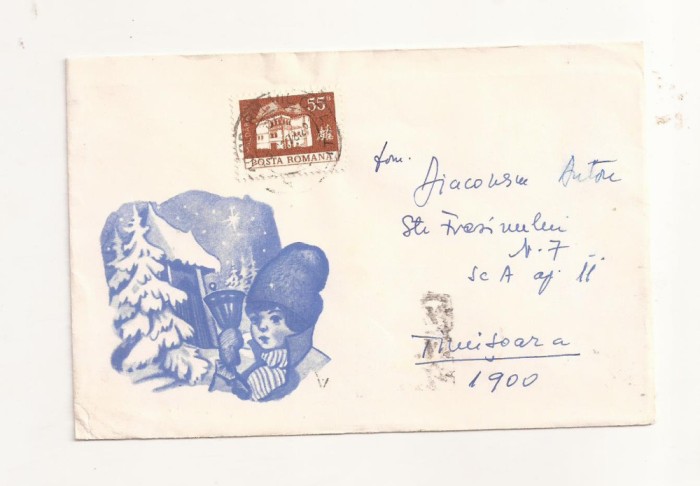 55
POSTA ROMANA
fam. Diaconescu Anton
Str Frasinului
N. 7
sc A ap. II
Timișoara
1900